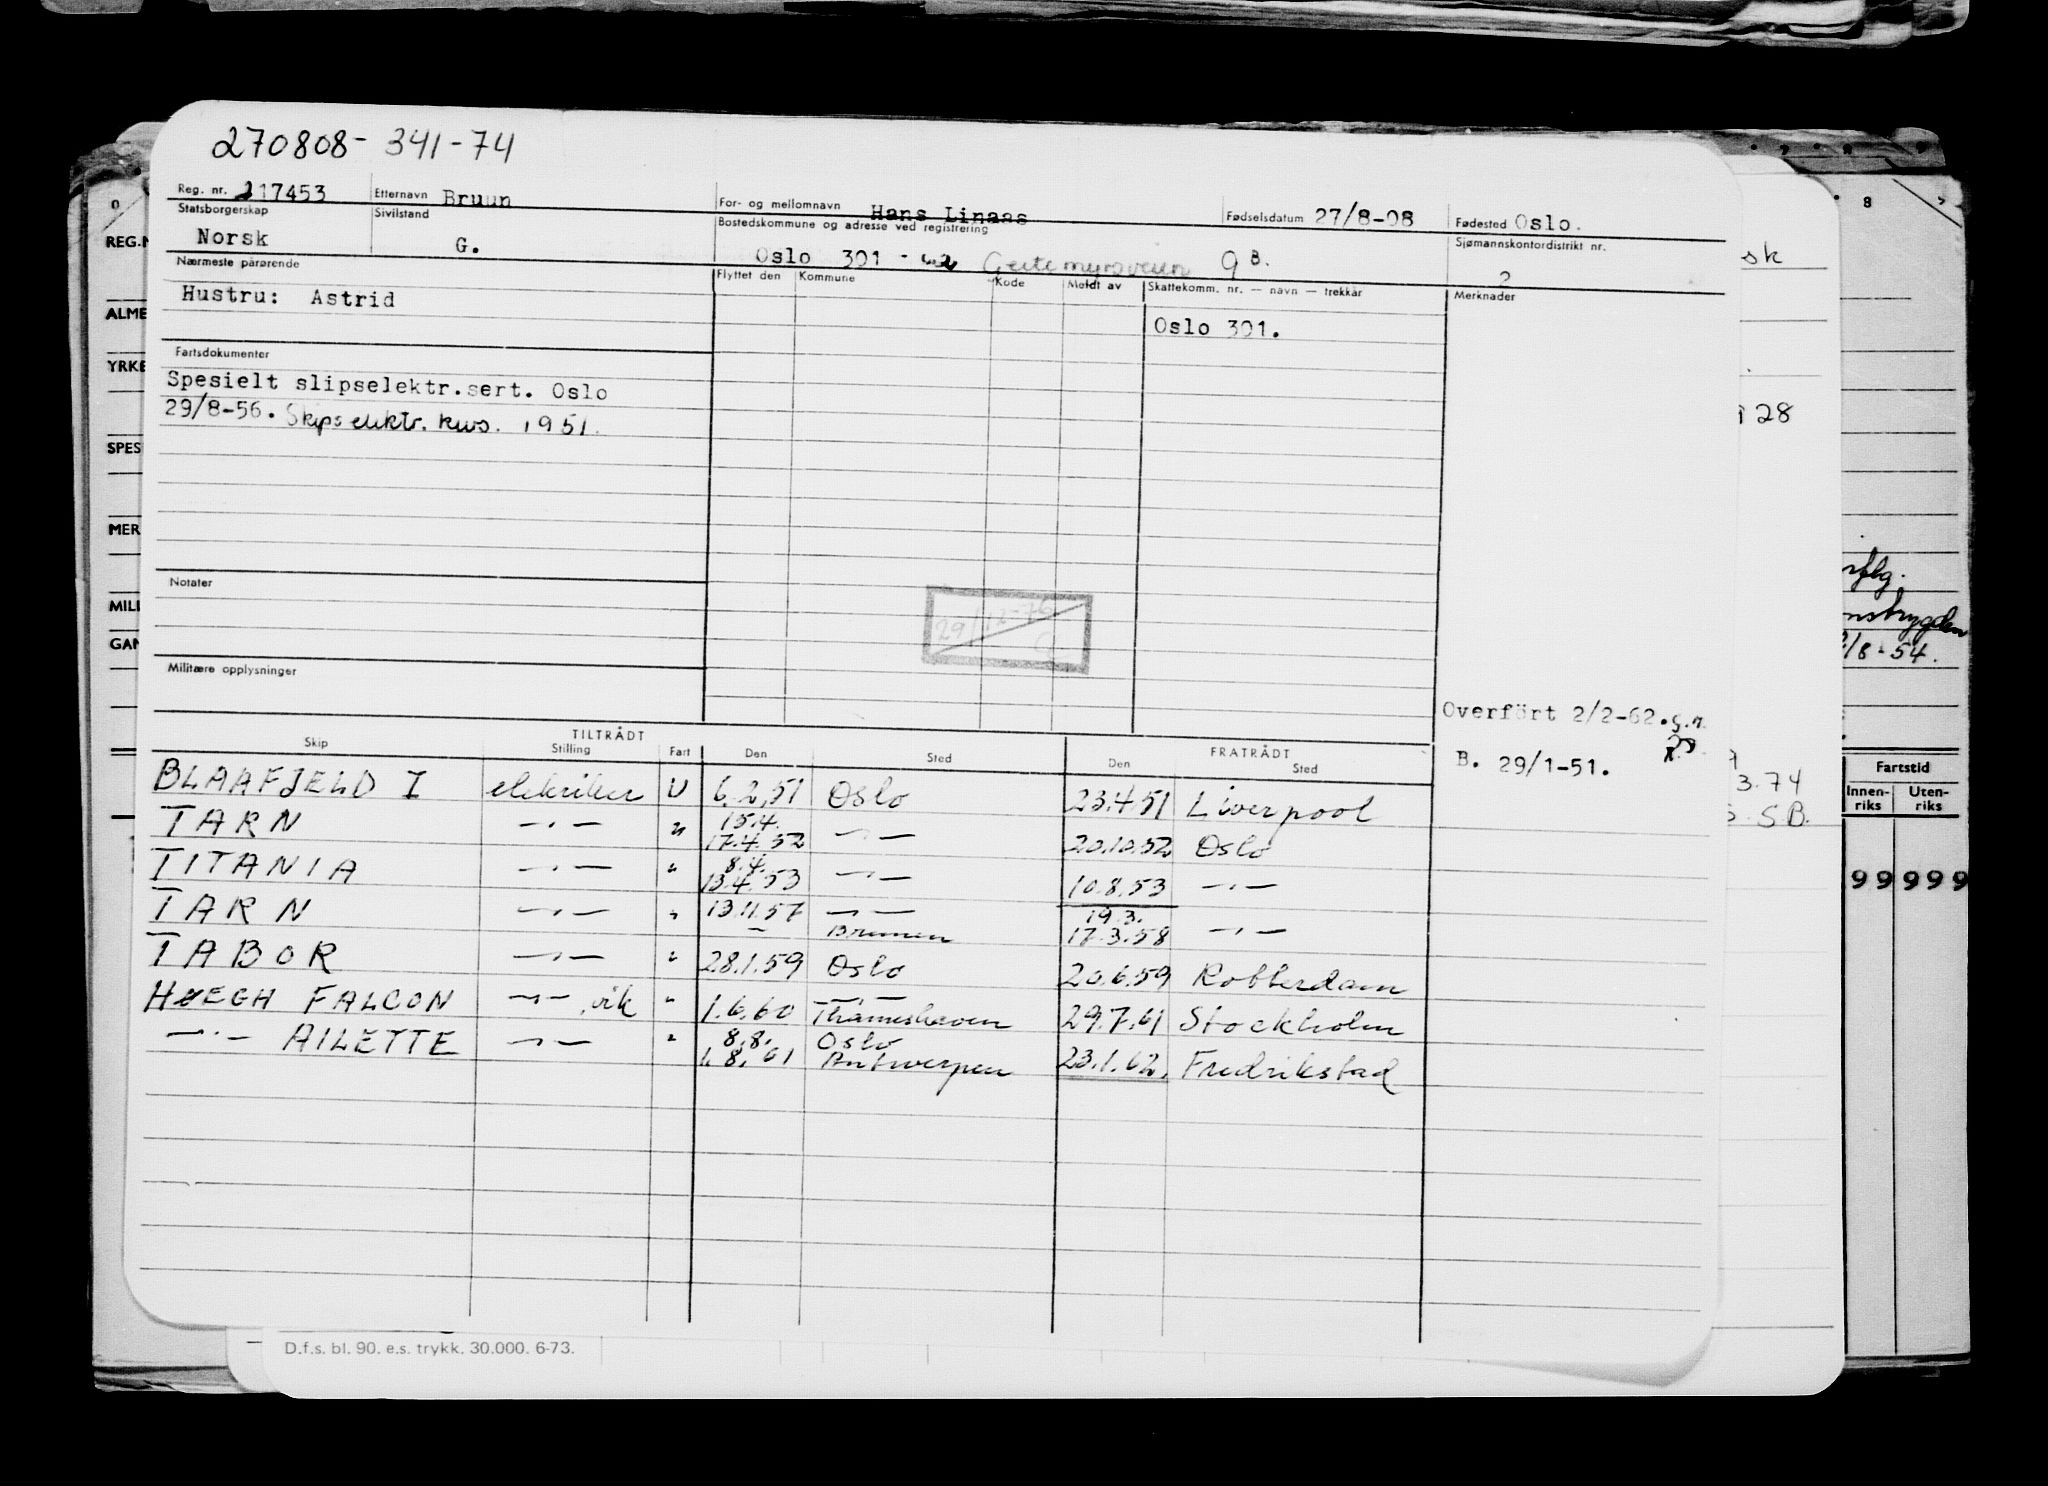 270808- 341-74
Reg. nr. 217453 Etternavn Bruun For- og mellomnavn Hans Linaas Fødselsdatum 27/8-08 Fødested Oslo.
Statsborgerskap Sivilstand Bostedskommune og adresse ved registrering Sjømannskontordistrikt nr.
Norsk G. Oslo 301 - Geitemyrsveien 9 B. 2
Nærmeste pårørende Flyttet den Kommune Kode Meldt av Skattekomm. nr. — navn — trekkår Merknader
Hustru: Astrid
Oslo 301.
Fartsdokumenter
Spesielt slipselektr.sert. Oslo
29/8-56. Skips elektr. kurs. 1951.
Notater
29/12-76
Militære opplysninger
Overfört 2/2-62.
B. 29/1-51.
TILTRÅDT FRATRÅDT
Skip Stilling Fart Den Sted Den Sted
BLAAFJELD I elektriker U 6.2.51 Oslo 23.4.51 Liverpool
TARN —"— " 15.4. 17.4.52 —"— 20.10.52 Oslo
TITANIA —"— " 8.4. 13.4.53 —"— 10.8.53 —"—
TARN —"— " 13.11.57 —"— Bremen 19.3. 17.3.58 —"—
TABOR —"— " 28.1.59 Oslo 20.6.59 Rotterdam
HØEGH FALCON —"— vik " 1.6.60 —"— Thameshaven 29.7.61 Stockholm
—"— AILETTE —"— " 8.8. 1.8.61 Oslo Antwerpen 23.1.62. Fredrikstad
D.f.s. bl. 90. e.s. trykk. 30.000. 6-73.
REG.N
ALME
YRKE
SPES
MER
MILI
GAN
0
8
sk
28
/8-54.
3.74
S.B.
Fartstid
Innen-riks Uten-riks
99 999